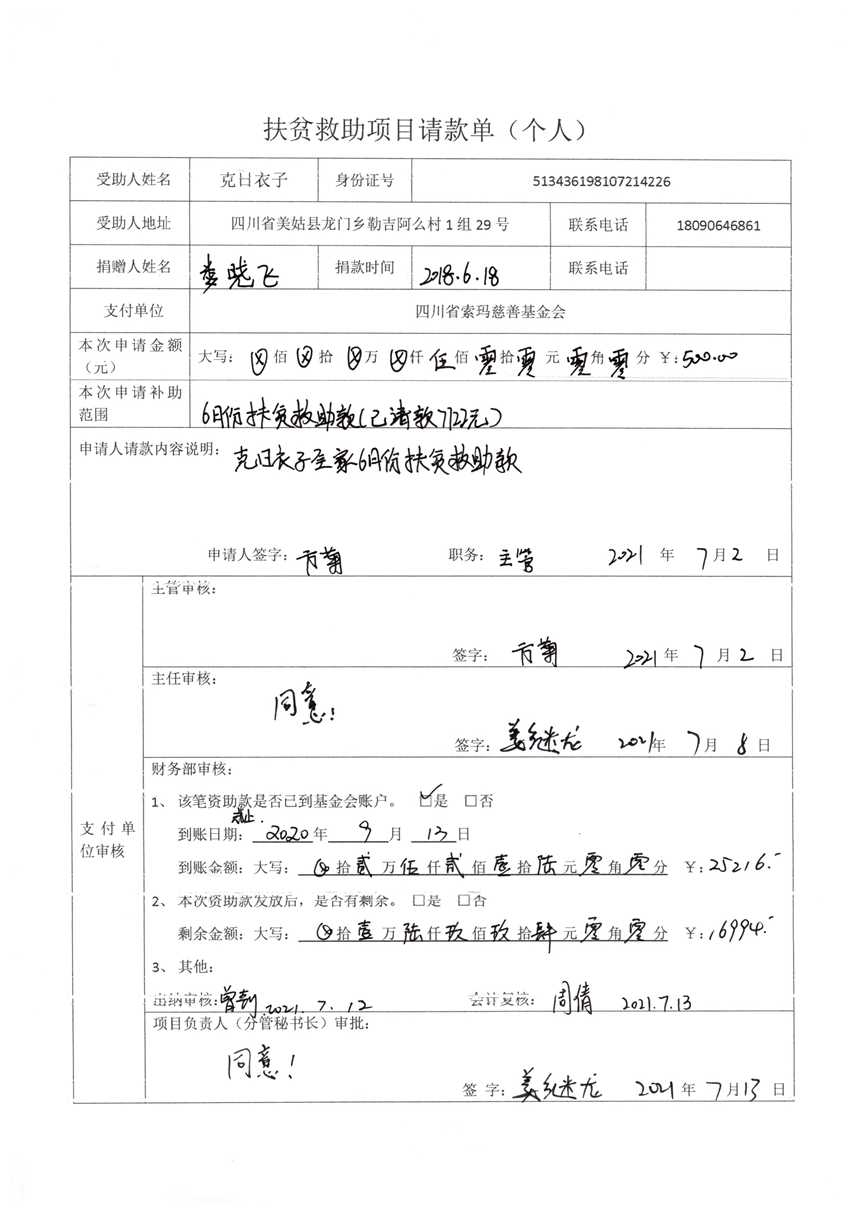 扶贫救助项目请款单（个人）
受助人姓名 克日衣子 身份证号 513436198107214226
受助人地址 四川省美姑县龙门乡勒吉阿么村1组29号 联系电话 18090646861
捐赠人姓名 娄晓飞 捐款时间 2018.6.18 联系电话
支付单位 四川省索玛慈善基金会
本次申请金额（元） 大写: ⊗佰⊗拾⊗万⊗仟伍佰零拾零元零角零分 ¥:500.00
本次申请补助范围 6月份扶贫救助款(已请款7722元)
申请人请款内容说明: 克日衣子全家6月份扶贫救助款
申请人签字: 方菊 职务: 主管 2021年7月2日
主管审核:
签字: 方菊 2021年7月2日
主任审核:
同意!
签字: 姜继龙 2021年7月8日
支付单位审核
财务部审核:
1、 该笔资助款是否已到基金会账户。 ☑是 □否
截止.
到账日期: 2020年9月13日
到账金额: 大写: ⊗拾贰万伍仟贰佰壹拾陆元零角零分 ¥:25216.-
2、 本次资助款发放后，是否有剩余。 □是 □否
剩余金额: 大写: ⊗拾壹万陆仟玖佰玖拾肆元零角零分 ¥:16994.-
3、 其他:
出纳审核: 2021.7.12 会计复核: 周倩 2021.7.13
项目负责人（分管秘书长）审批:
同意!
签 字: 姜继龙 2021年7月13日